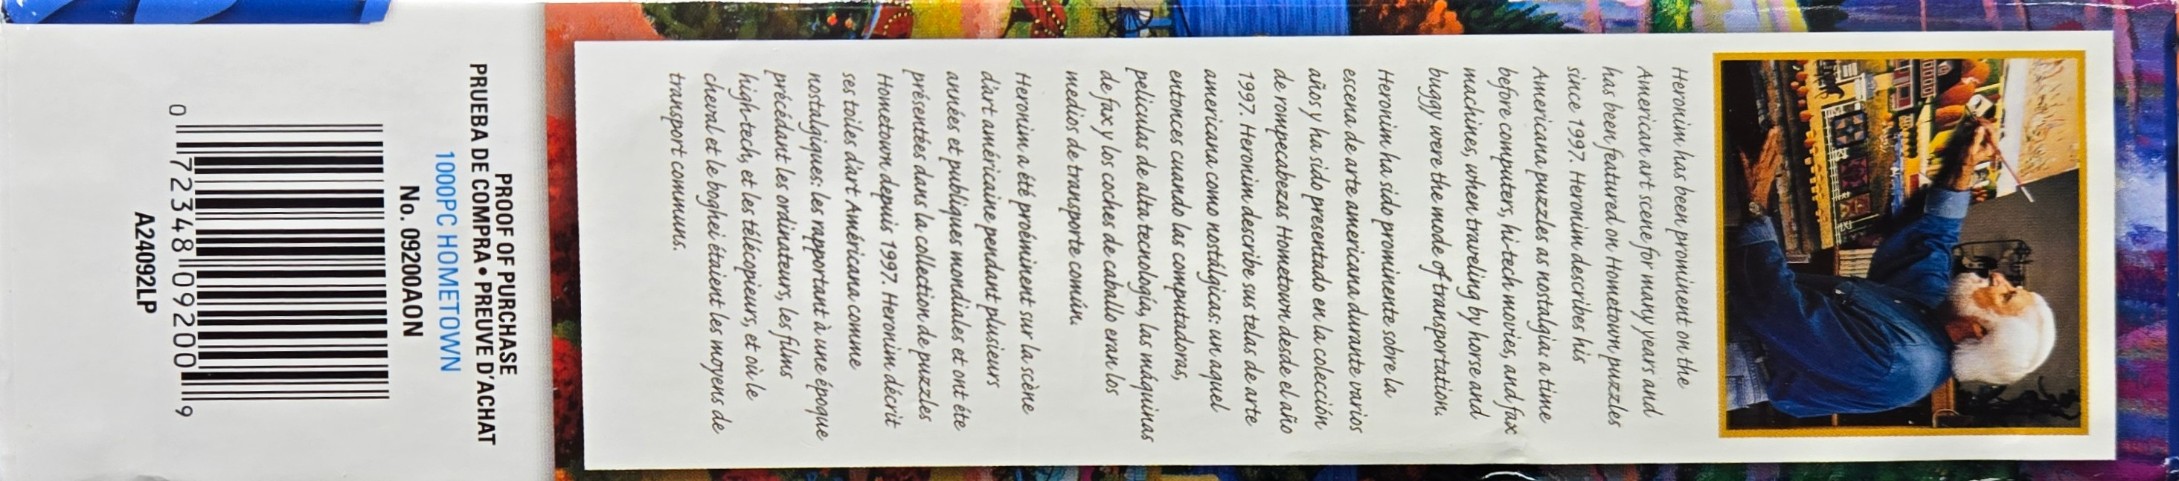 Heronim has been prominent on the
American art scene for many years and
has been featured on Hometown puzzles
since 1997. Heronim describes his
Americana puzzles as nostalgia: a time
before computers, hi-tech movies, and fax
machines, when traveling by horse and
buggy were the mode of transportation.
Heronim ha sido prominente sobre la
escena de arte americana durante varios
años y ha sido presentado en la colección
de rompecabezas Hometown desde el año
1997. Heronim describe sus telas de arte
americana como nostálgicas: un aquel
entonces cuando las computadoras,
peliculas de alta tecnología, las máquinas
de fax y los coches de caballo eran los
medios de transporte común.
Heronim a été proéminent sur la scène
d'art américaine pendant plusieurs
années et publiques mondiales et ont éte
présentées dans la collection de puzzles
Hometown depuis 1997. Heronim décrit
ses toiles d'art Américana comme
nostalgiques: les rapportant à une époque
précédant les ordinateurs, les films
high-tech, et les télécopieurs, et où le
cheval et le boghei étaient les moyens de
transport communs.
PROOF OF PURCHASE
PRUEBA DE COMPRA • PREUVE D'ACHAT
1000PC HOMETOWN
No. 09200AON
0 72348 09200 9
A24092LP